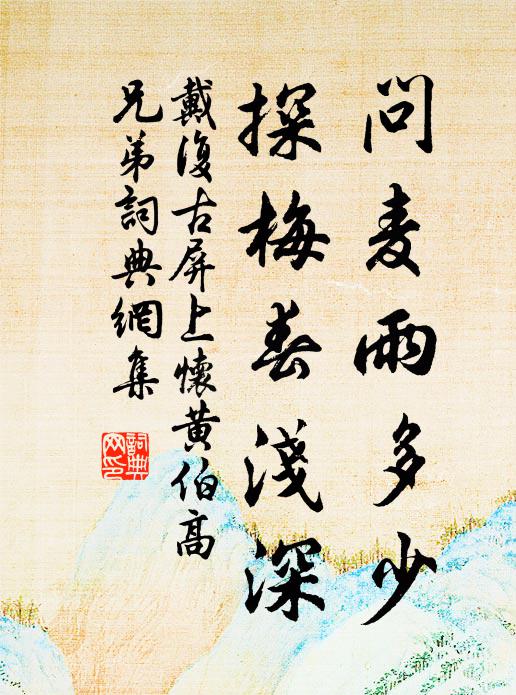 問麦雨多少
探梅春淺深
戴復古屏上懷黄伯高
兄弟詞典網集
詞典
网印